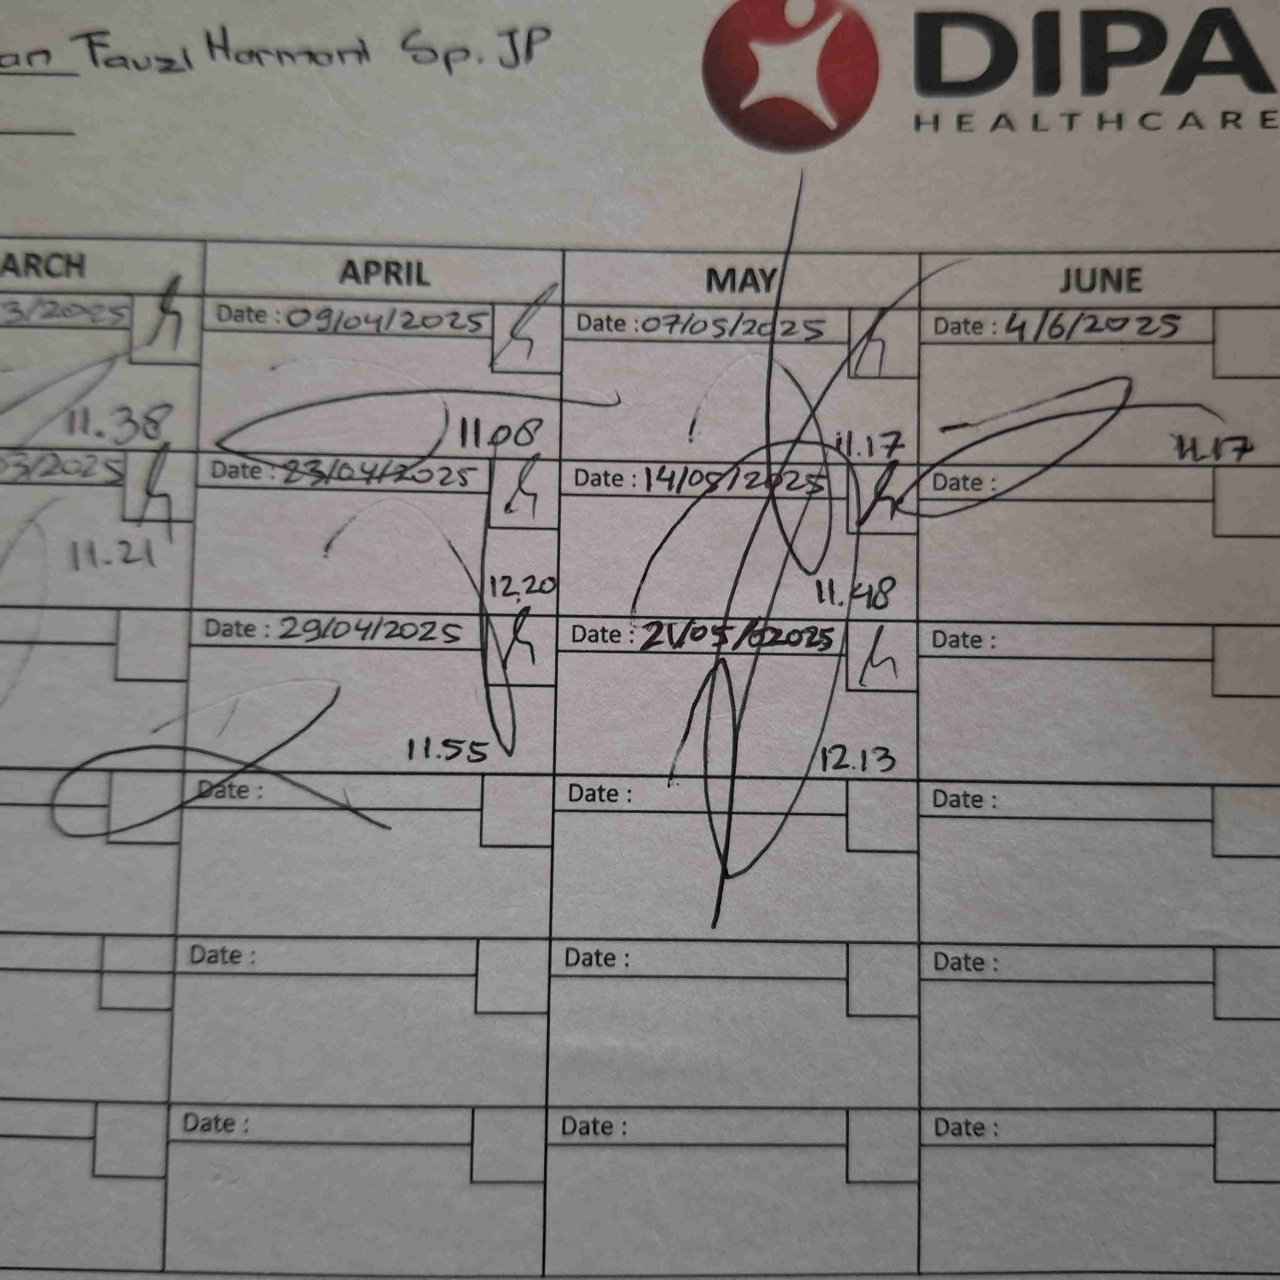 an Fauzi Harmani Sp. JP
DIPA
HEALTHCARE
ARCH APRIL MAY JUNE
3/2025 Date : 09/04/2025 Date : 07/05/2025 Date : 4/6/2025
11.38 11.08 11.17 11.17
03/2025 Date : 23/04/2025 Date : 14/05/2025 Date :
11.21 12.20 11.48
Date : 29/04/2025 Date : 21/05/2025 Date :
11.55 12.13
Date : Date : Date :
Date : Date : Date :
Date : Date : Date :